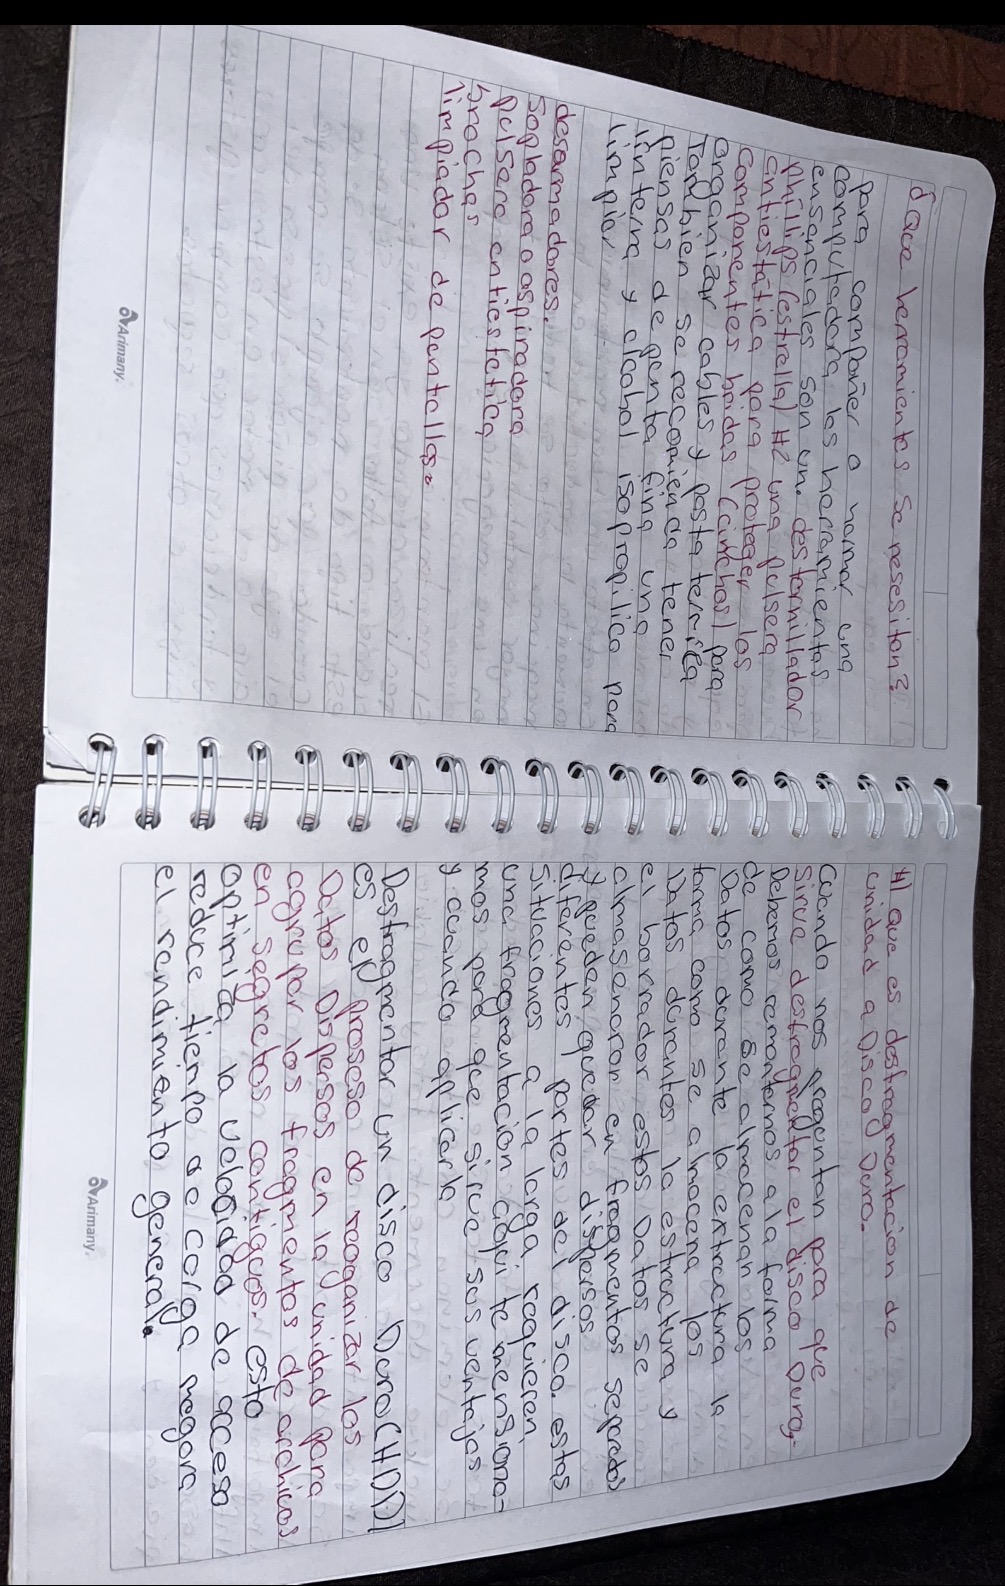 ¿Que herramientas se nesesitan?
para componer o harmar una
computadora, las herramientas
ensanciales son un. destornillador
phillips (estrella) #2 una pulsera
antiestática para proteger los
componentes bridas (cinchos) para
organizar cables y pasta termica
Tanbien se recomienda tener
piensas de penta fina una
linterna y alcohol isopropilico para
limpiar
desarmadores.
Sopladora o aspiradora
pulsera antiestetica
brochas
limpiador de pantallas.
Arimany.
4) que es desfragmentacion de
unidad a Disco Duro.
Cuando nos preguntan para que
sirve desfragmentar el disco Duro,
Debemos remontarnos a la forma
de como se almacenan los
Datos durante la extructura la
forma como se almacena los
Datos durantes la estructura y
el borrador estos Datos se
almasenaran en fragmentos sepados
y pueden quedar dispersos
diferentes partes del disco. estas
situaciones a la larga requieren
una fragmentacion aqui te mensiona-
mos para que sirve sus ventajas
y cuando aplicarla
Desfragmentar un disco Duro (HDD)
es el proseso de reoganizar los
Datos Dispersos en la unidad para
agrupar los fragmentos de archivos
en segnetos contiguos. esto
optimiza la velocidad de acceso
reduce tiempo de carga megora
el rendimiento general.
Arimany.